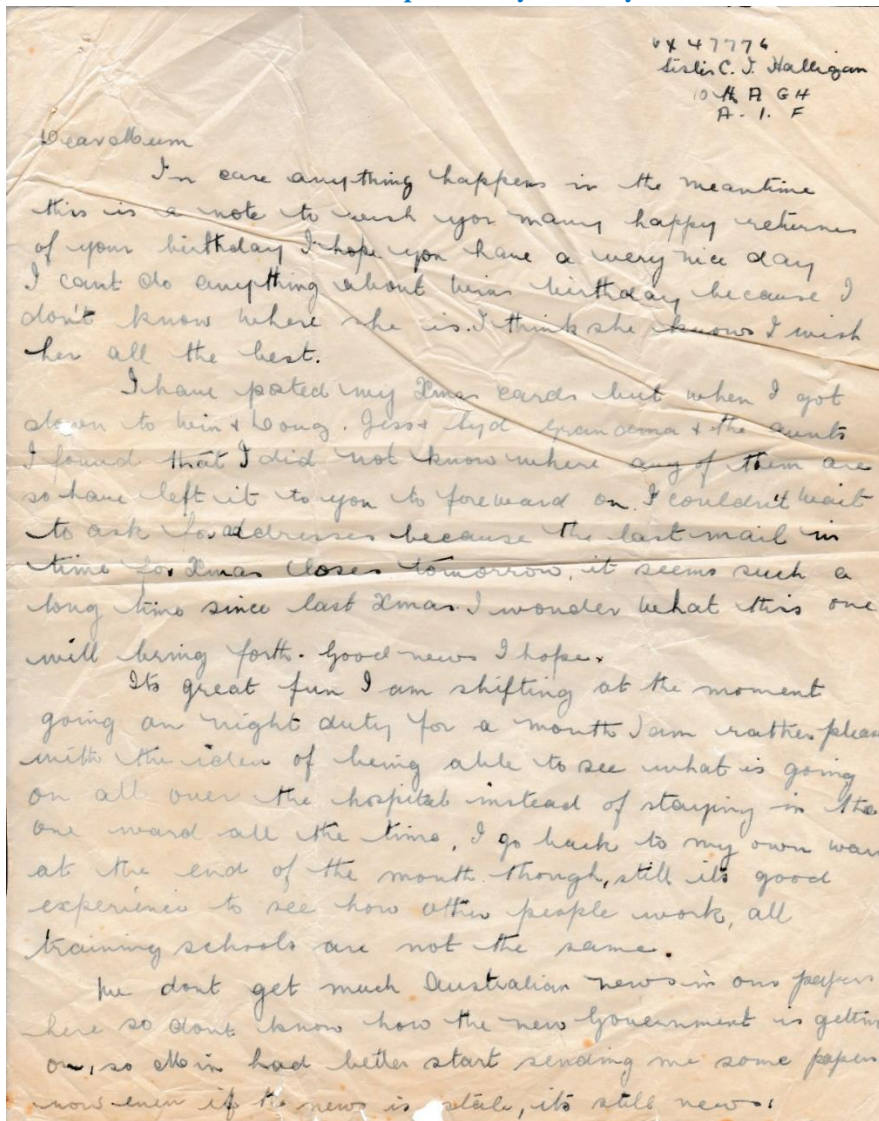 VX 47776
Sister C. I. Halligan
10th A G H
A. I. F
Dear Mum
In case anything happens in the meantime
this is a note to wish you many happy returns
of your birthday I hope you have a very nice day
I cant do anything about Wins birthday because I
don't know where she is. I think she knows I wish
her all the best.
I have posted my Xmas cards but when I got
down to Win & Doug. Jess & Syd Grandma & the aunts
I found that I did not know where any of them are
so have left it to you to foreward on. I couldn't wait
to ask for addresses because the last mail in
time for Xmas closes tomorrow, it seems such a
long time since last Xmas. I wonder what this one
will bring forth. Good news I hope.
Its great fun I am shifting at the moment
going on night duty for a month I am rather pleas
with the idea of being able to see what is going
on all over the hospital instead of staying in the
one ward all the time, I go back to my own war
at the end of the month though, still its good
experience to see how other people work, all
training schools are not the same.
We dont get much Australian news in our papers
here so dont know how the new Government is gettin
on, so Min had better start sending me some papers
now even if the news is stale, its still news.